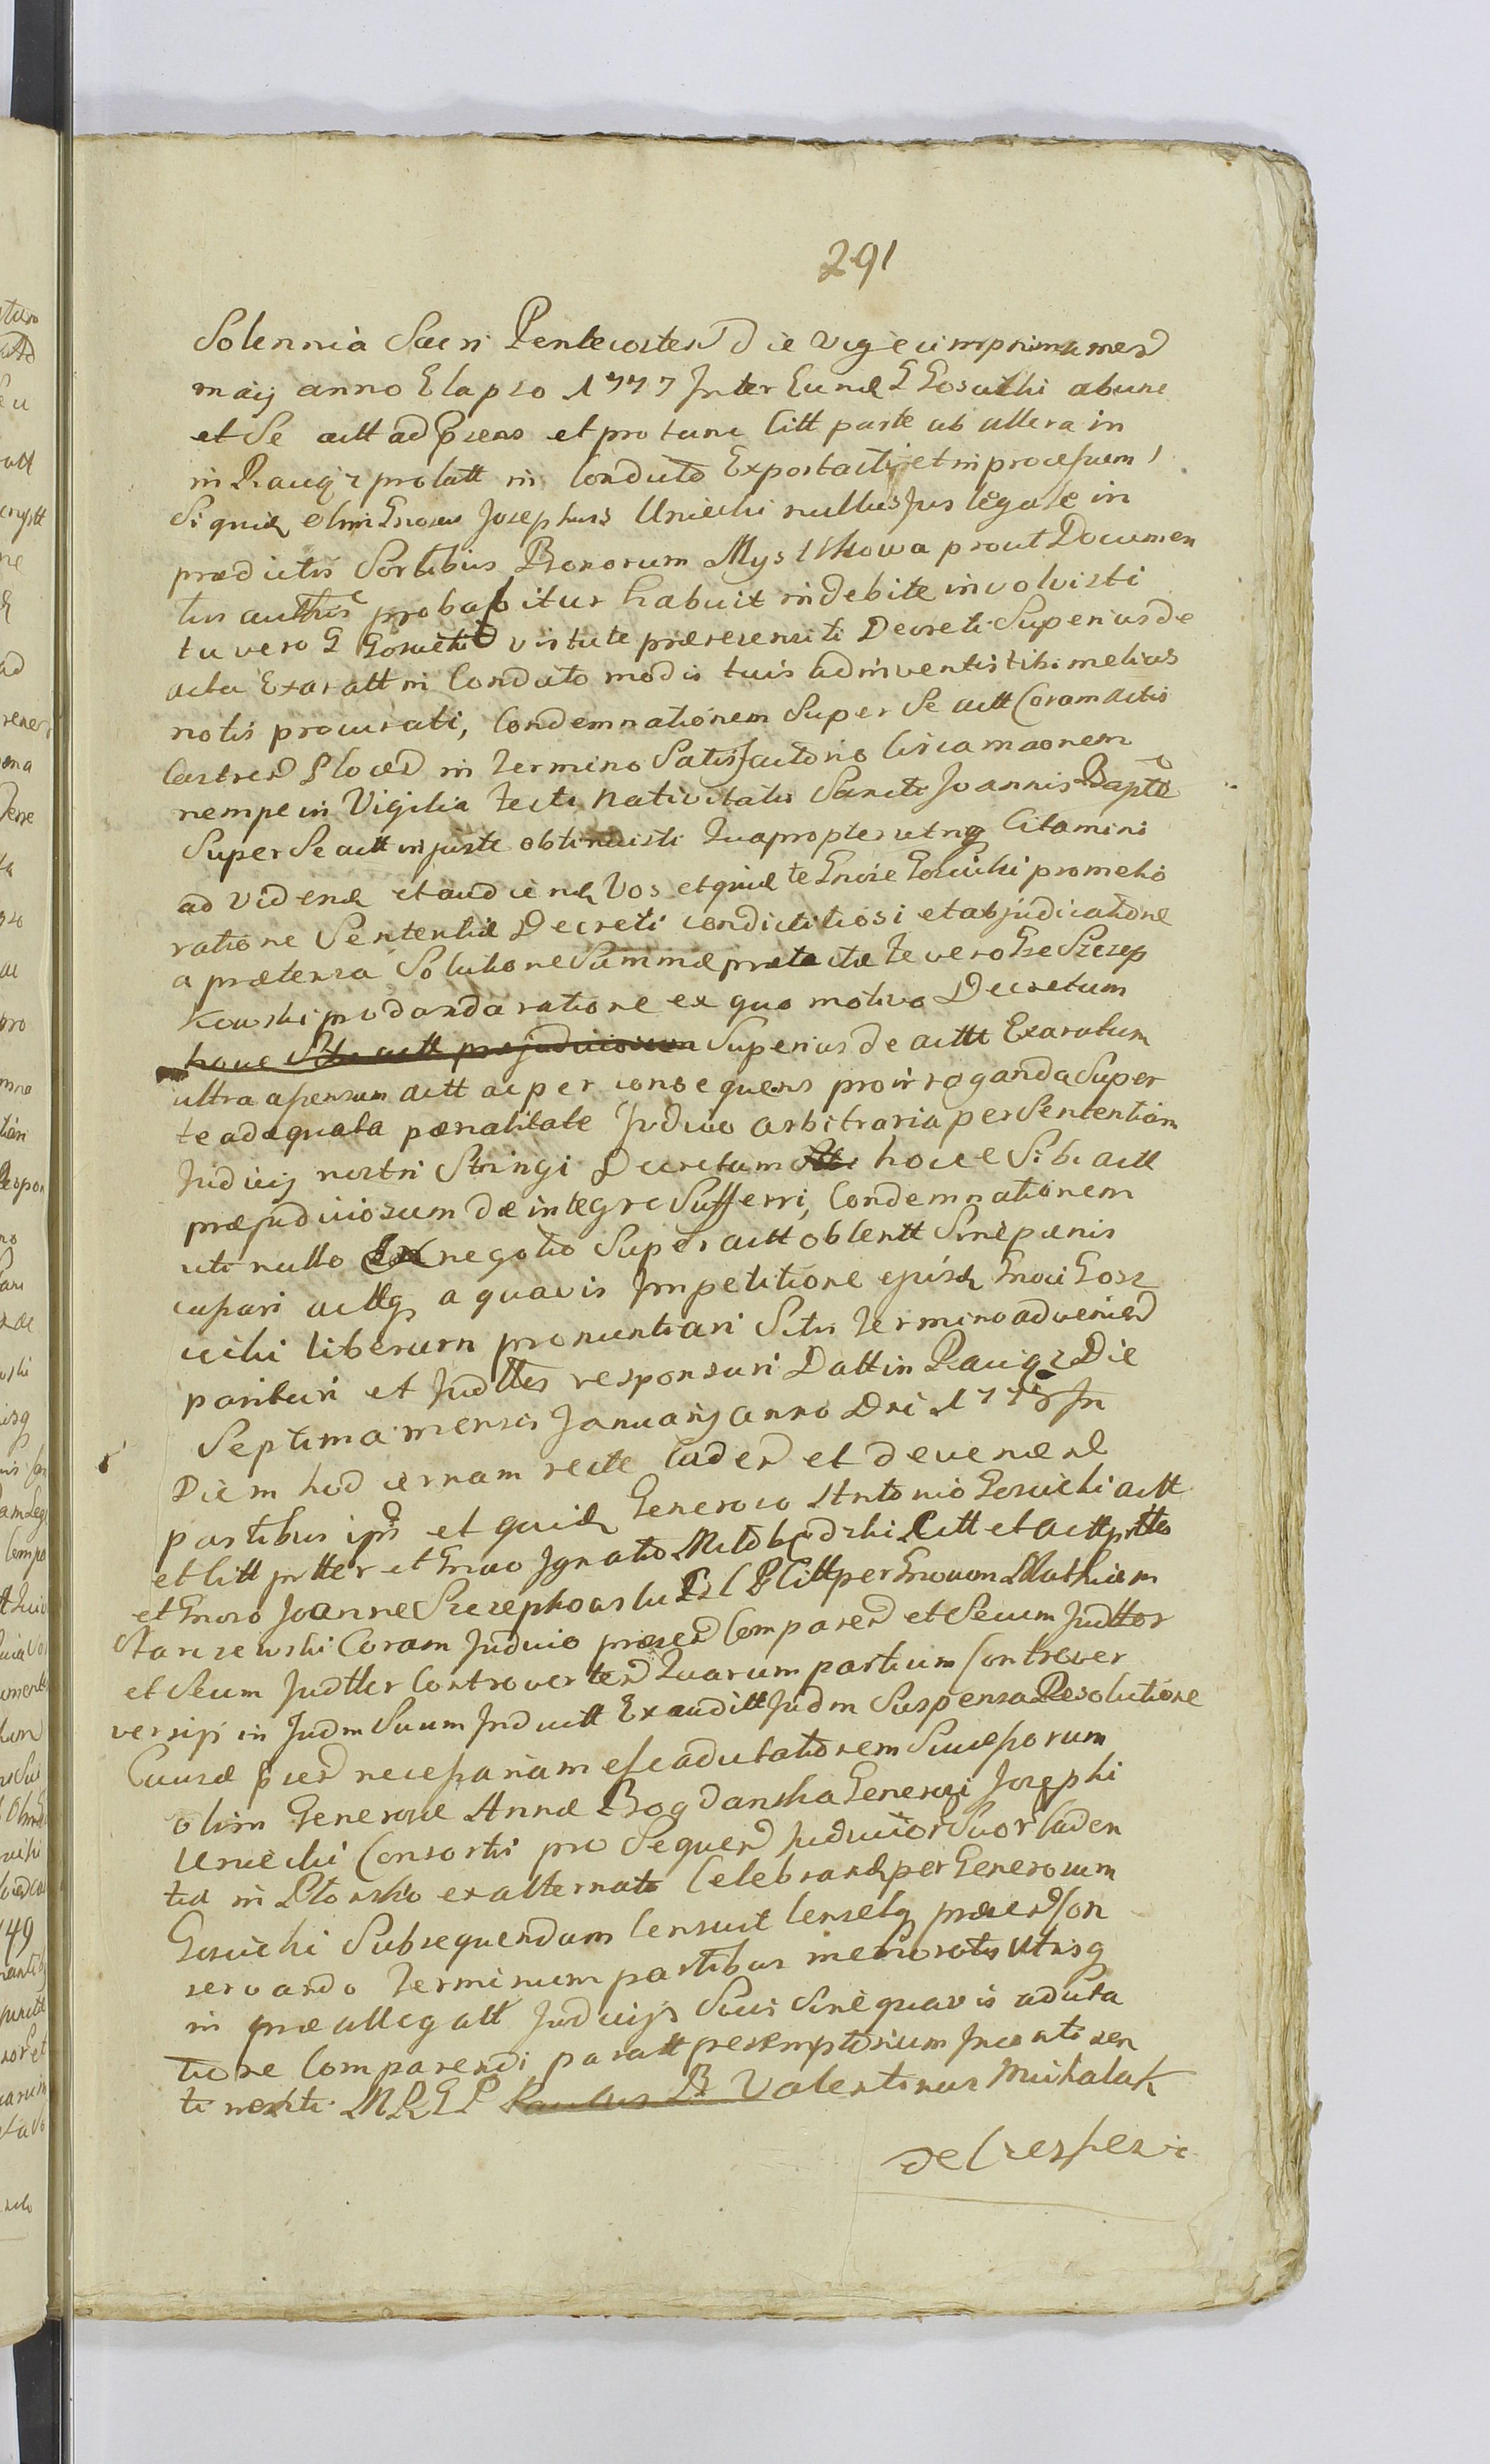 291
Solennia Sacri Pentecosten Die vigesimprima mens
maij anno Elapso 1777 Inter Eund G Gosuchi abunc
et Se actt ad prsens et pro tunc Citt parte ab altera in
in Raciąż prolatt in Conducto Exportasti et in procesuem
Si quid olim Gnosus Josephus Uniecki nullus Jus legale in
prædictis Sortibus Bonorum Myslikowa prout Documen
tis authcis probabitur habuit indebite involvisti
tu vero G Gosucki virtute prærecensiti Decreti Superius de
acta Exaratt in Condato modis tuis adinventis tibi melius
notis procurasti, Condemnationem Super Se actt Coram actis
Castren Plocen in termino Satisfactorio
nempe in Vigilia Festi Nativitatis Sancti Joannis Baptæ
Super Se actt injuste obtinuisti Quapropter utrq Citamini
ad Videnđ et audienđ Vos et quid te Gnose Gosucki pro
ratione Sententiæ Decreti condictitiosi et abjudicatione
a prætensa Solutione Summæ prætactæ te vero Gse Szczep
kowski pro danda ratione ex quo motivo Decretum
hocce Sibi actt præjudiciosum Superius de actt Exaratum
ultra asensum actt ac per consequens pro irroganda Super
te adæquata pænalitate Judicio arbitraria per Sententiam
Judicij nostri Stringi Decretum hocce Sibi actt
præjudiciosum de integro Sufferri, Condemnationem
uti nullo Ex negotio Super actt obtentt Sine pænis
casari acttq a quavis Impetitione ejusd Gnosi Gosz
ucki liberum pronuntiari Sitis termino advenien
parituri et Judtter responsuri Datt in Raciąż Die
Septima mensis Januarij anno Dni 1778 In
Diem hodiernam recte Caden et devenienđ
partibus ipsis et quid Generoso Antonio Gosucki actt
et Citt prtter et Gnoso Ignatio Miłobędzki Citt et actt prtter
et Gnoso Joanne Szczepkowski Citt per Gnosum Mathiam
Starczewski Coram Judicio præsen Comparen et Secum Judtter
et Secum Judtter Controverten Quarum partium Controver
versijs in Judm Suum Inductt Exauditt Judm Suspensa Resolutione
Causæ prsen necessariam esse adcitationem Succesorum
olim Generosæ Annæ Bogdanska Generosi Josephi
Uniecki Consortis pro Sequen Judicior Suor Caden
tia in Płonsko ex alternata Celebranđ per Generosum
Gosucki Subsequendam Censuit Censetq præsen Con
servando terminum partibus memoratis Utrisq
in præallegatt Judicijs Suis Sine quavis adcita
tione Comparendi paratt peremptorium
Valentinus Michalak